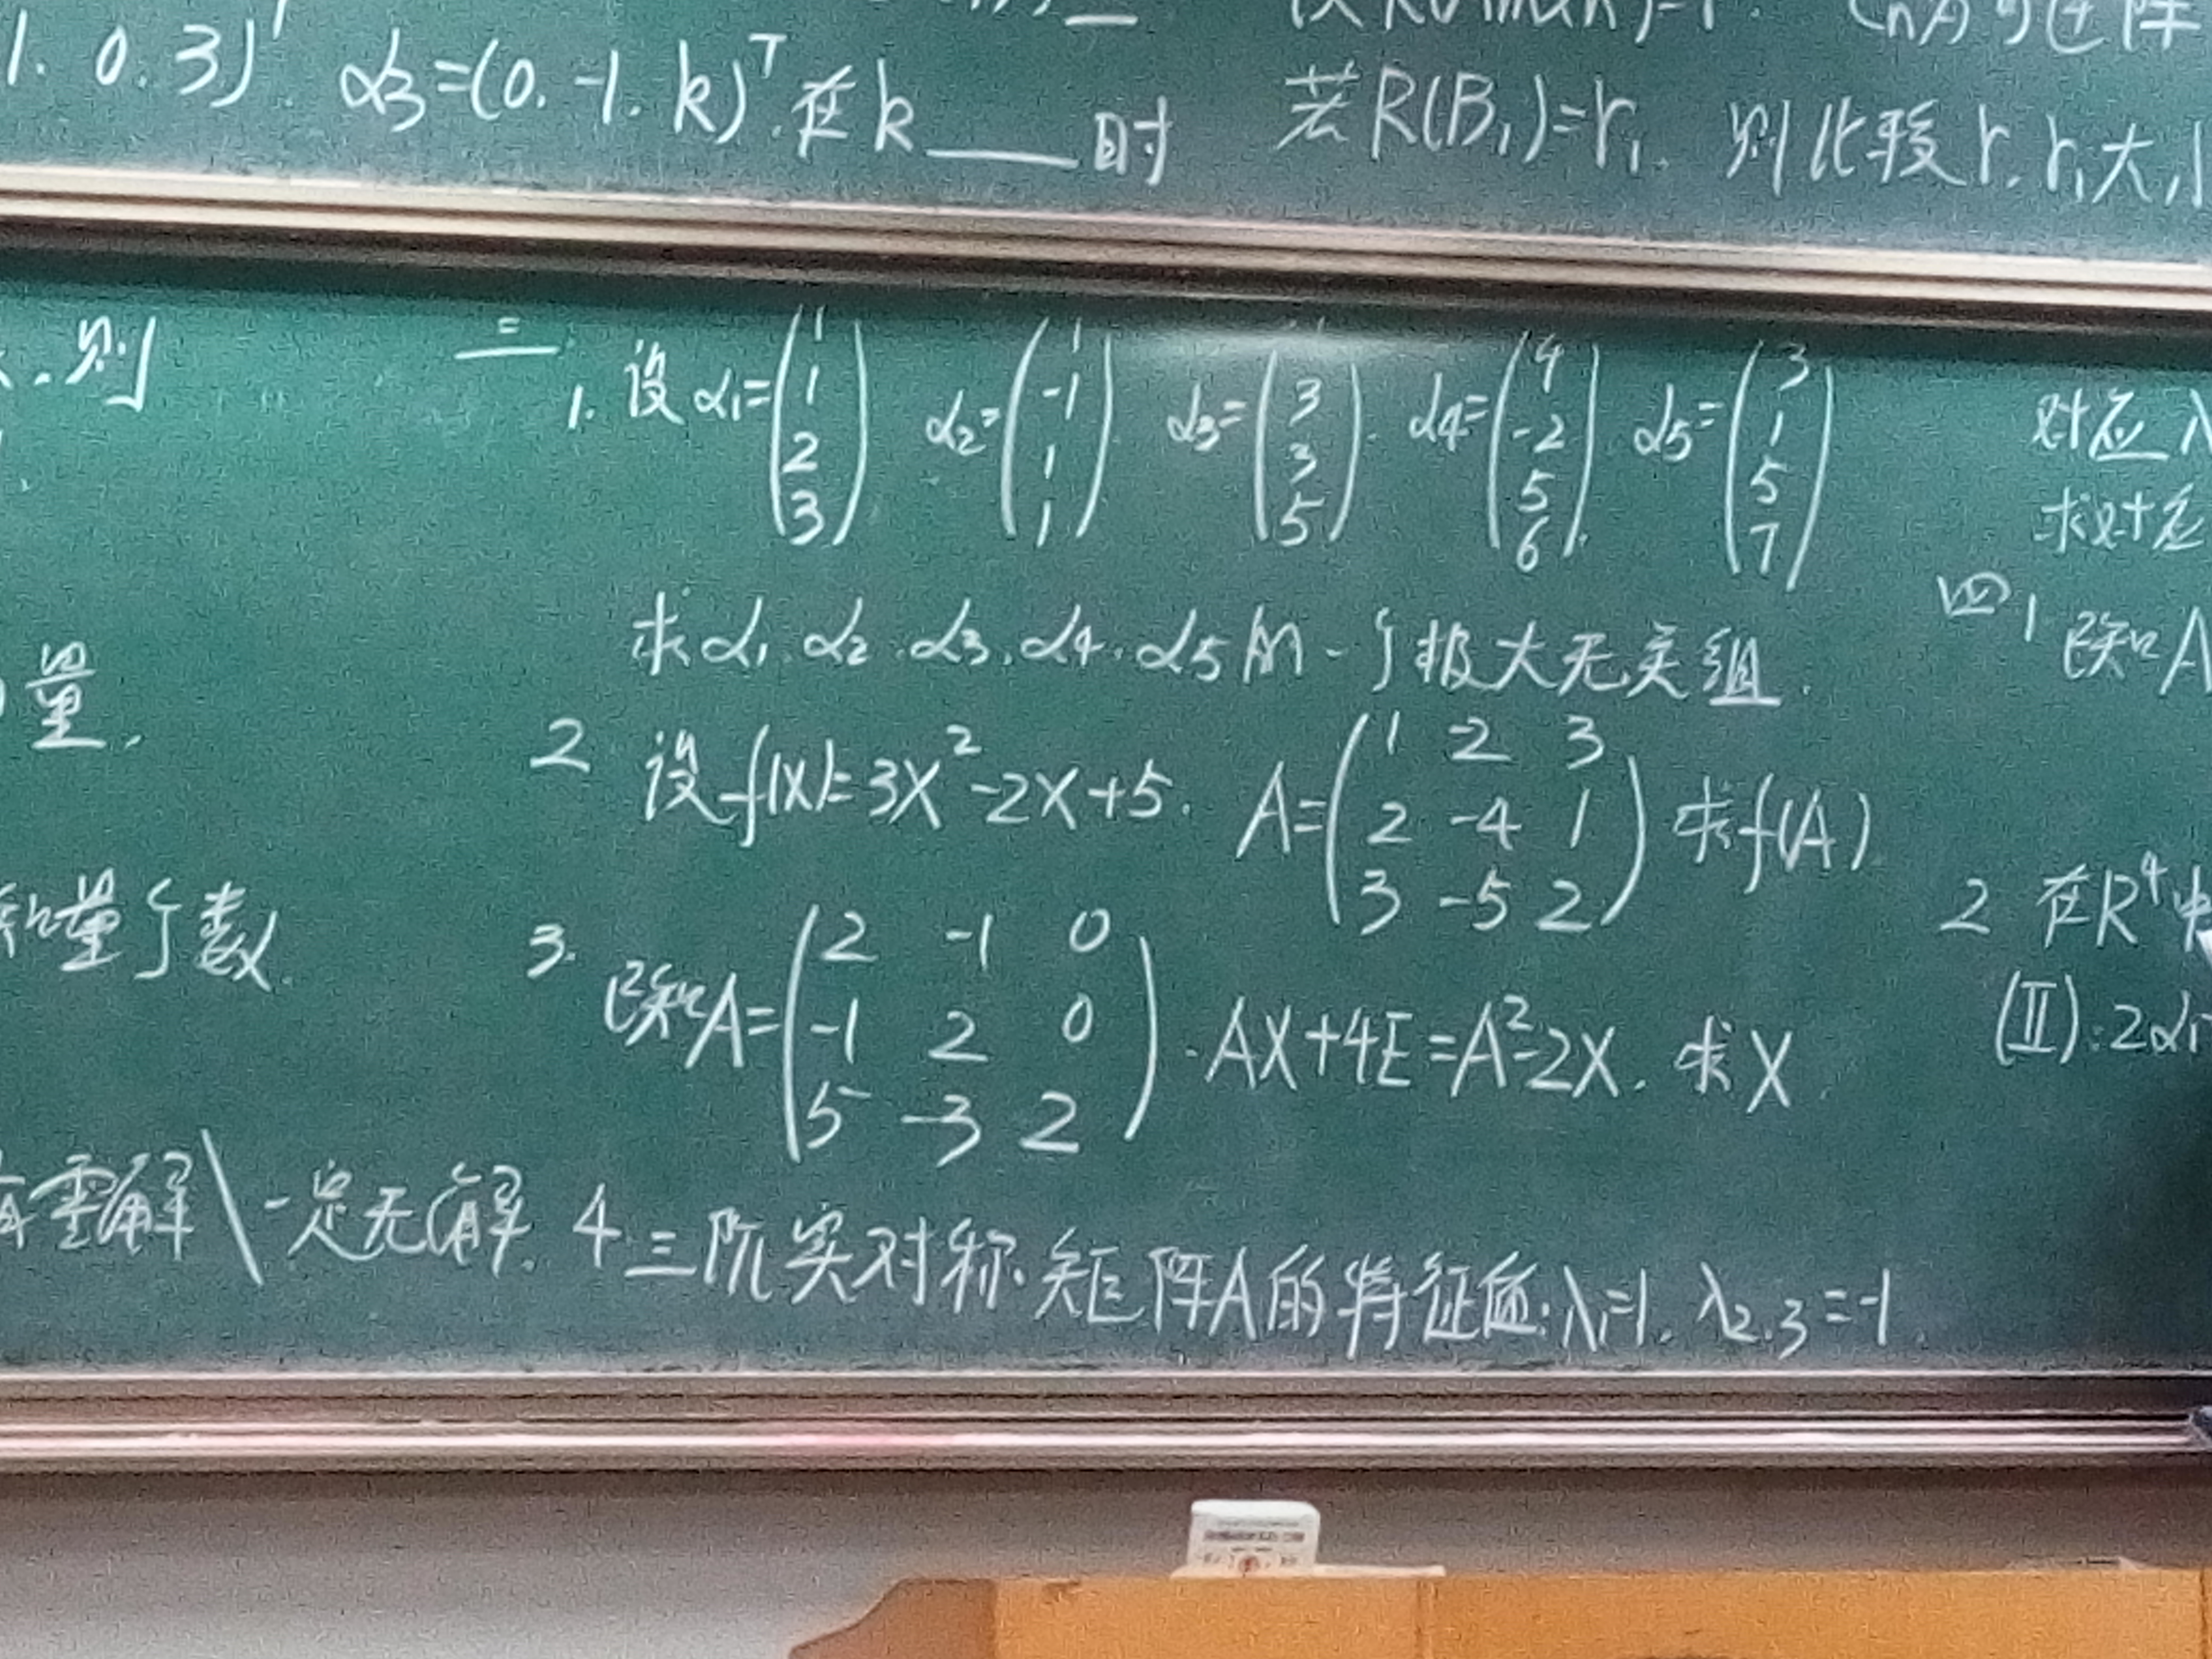 1. 0. 3)ᵀ α₃=(0. -1. k)ᵀ.在k___时
若R(B₁)=r₁. 则比较r. r₁大小
. 则
三
1. 设α₁=(1 1 2 3) α₂=(1 -1 1 1) α₃=( 3 3 5). α₄=(4 -2 5 6). α₅=(3 1 5 7)
求α₁.α₂.α₃.α₄.α₅的一个极大无关组.
量.
2 设f(x)=3x²-2x+5. A=(1 -2 3
2 -4 1
3 -5 2) 求f(A)
量个数.
3. 已知A=(2 -1 0
-1 2 0
5 -3 2). AX+4E=A²-2X. 求X.
零解\一定无解.
4 三阶实对称矩阵A的特征值:λ₁=1. λ₂.₃=-1.
对应λ
求对应
四1 已知A
2 在R⁴中
(Ⅱ):2α₁